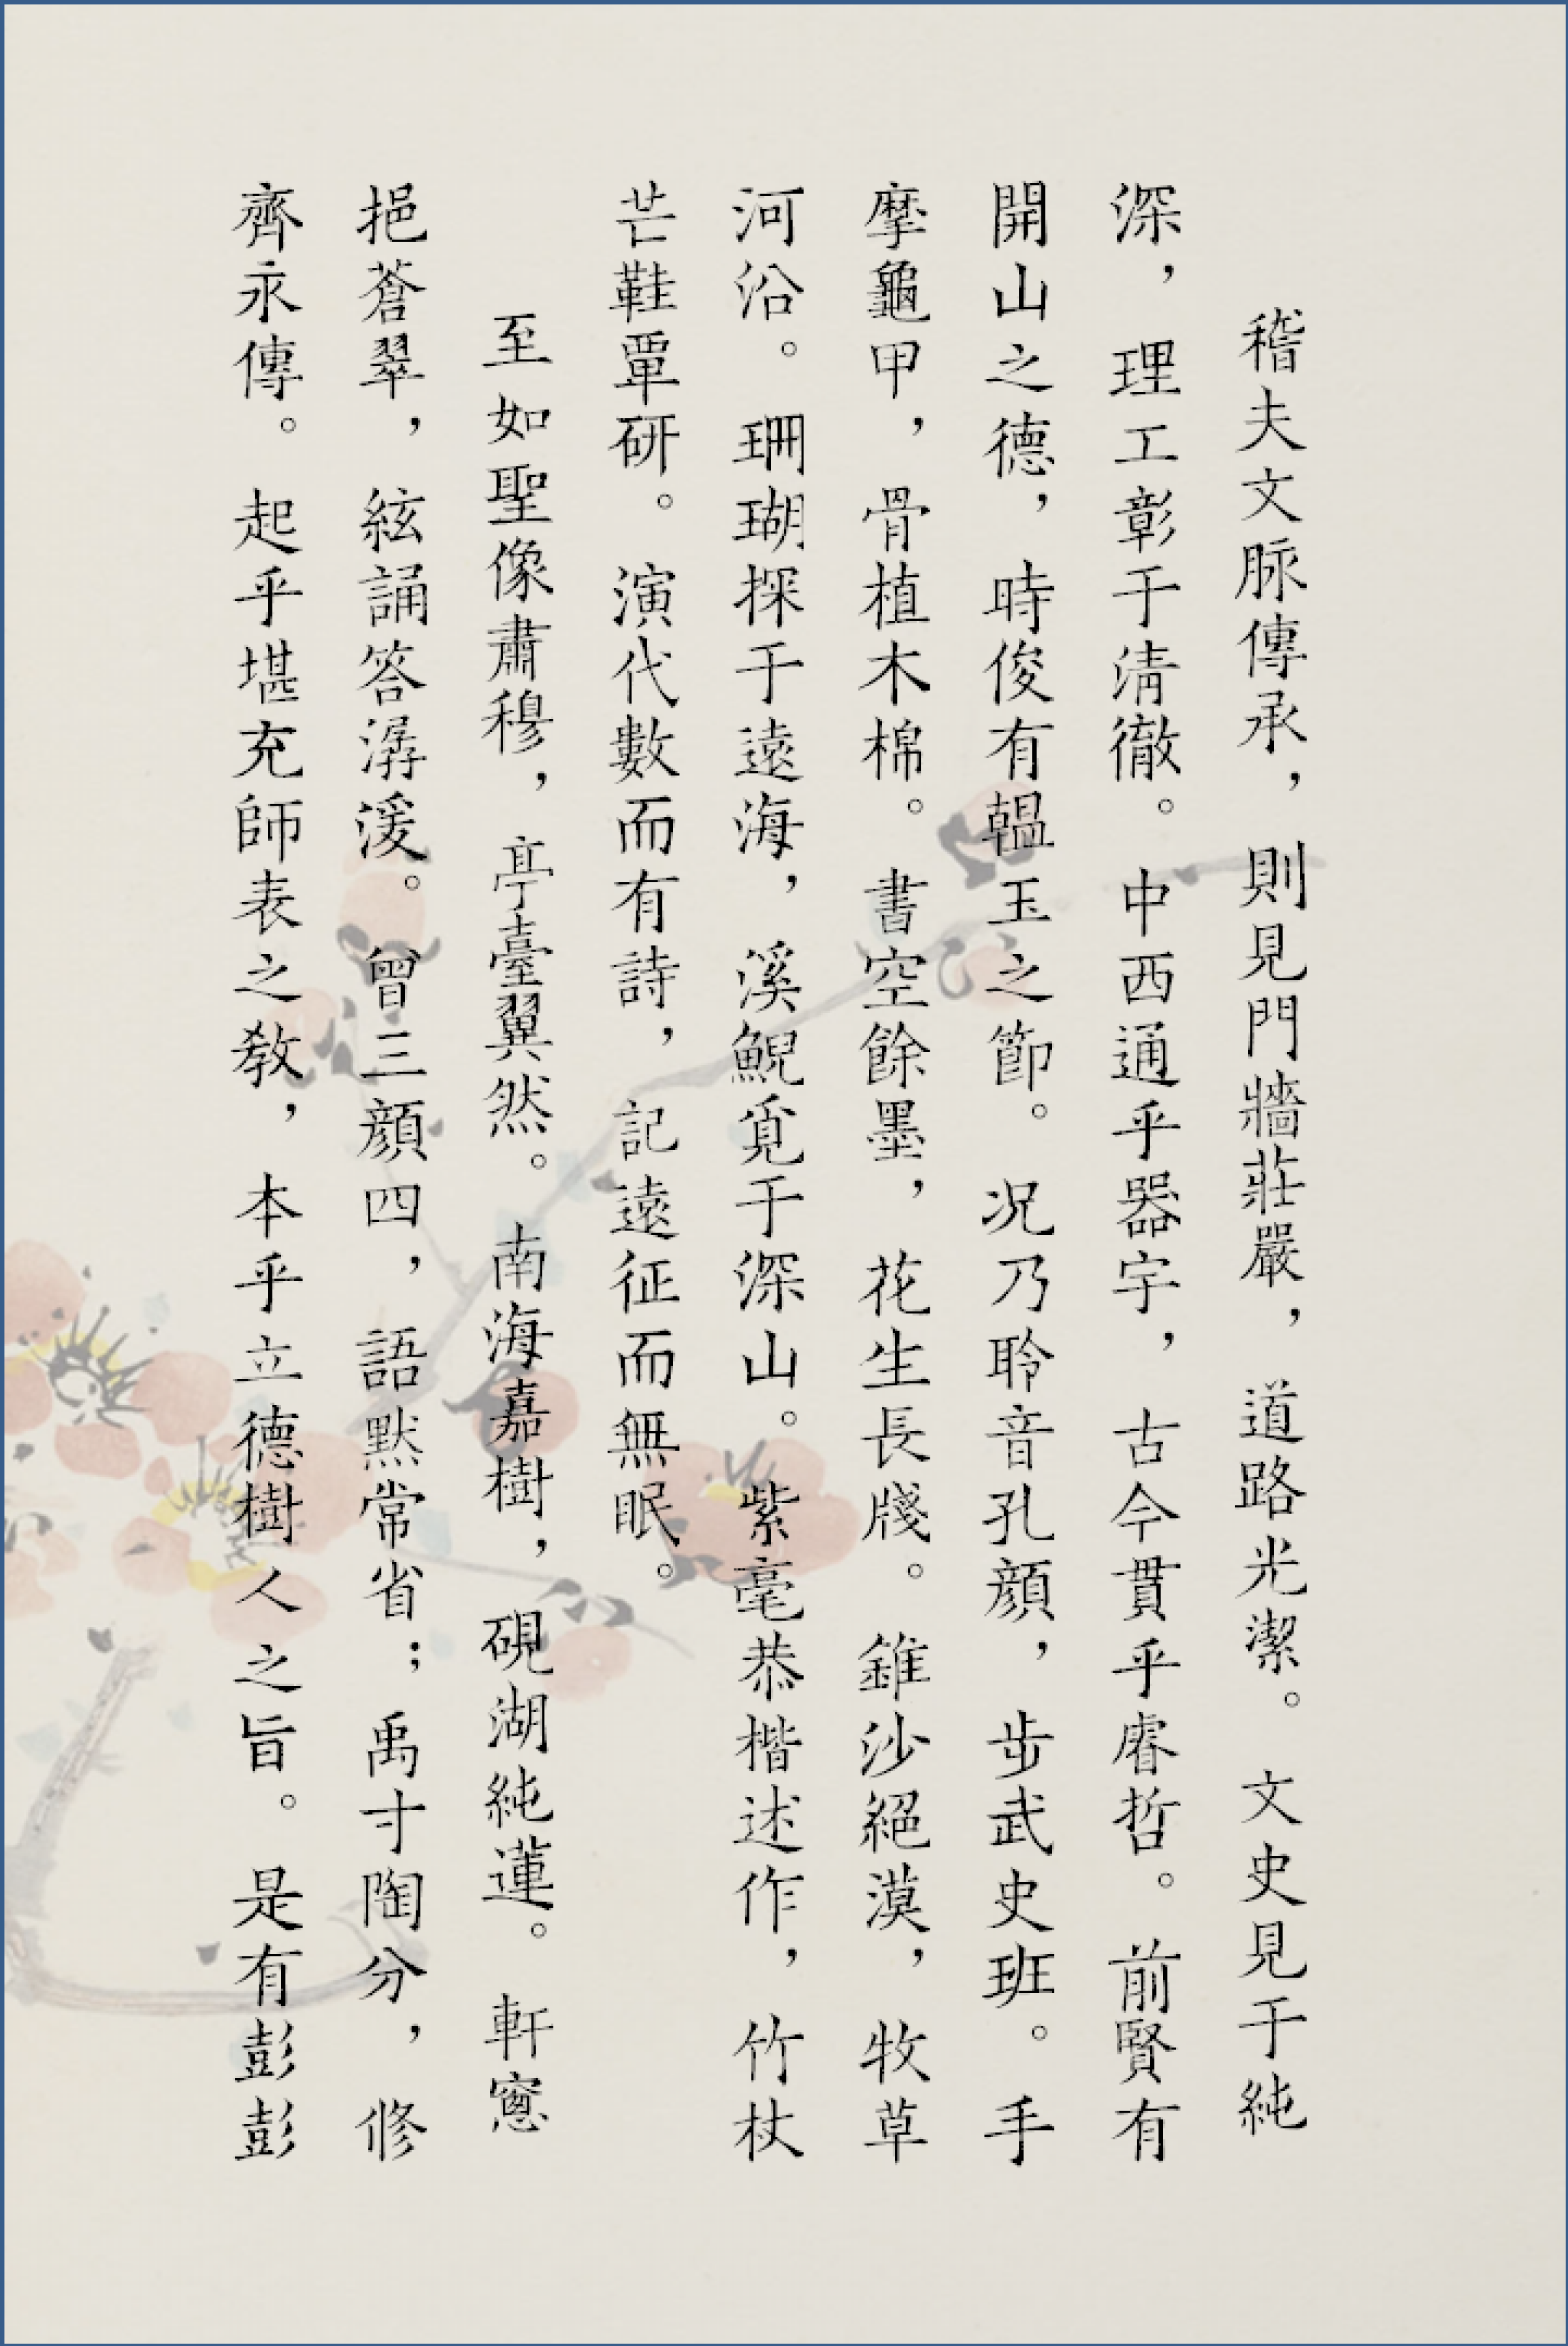 稽夫文脉傳承，則見門牆莊嚴，道路光潔。文史見于純
深，理工彰于清徹。中西通乎器宇，古今貫乎睿哲。前賢有
開山之德，時俊有韞玉之節。況乃聆音孔顔，步武史班。手
摩龜甲，骨植木棉。書空餘墨，花生長牋。錐沙絕漠，牧草
河沿。珊瑚探于遠海，溪鯢覓于深山。紫毫恭楷述作，竹杖
芒鞋覃研。演代數而有詩，記遠征而無眠。
至如聖像肅穆，亭臺翼然。南海嘉樹，硯湖純蓮。軒窻
挹蒼翠，絃誦答潺湲。曾三顔四，語默常省；禹寸陶分，修
齊永傳。起乎堪充師表之教，本乎立德樹人之旨。是有彭彭